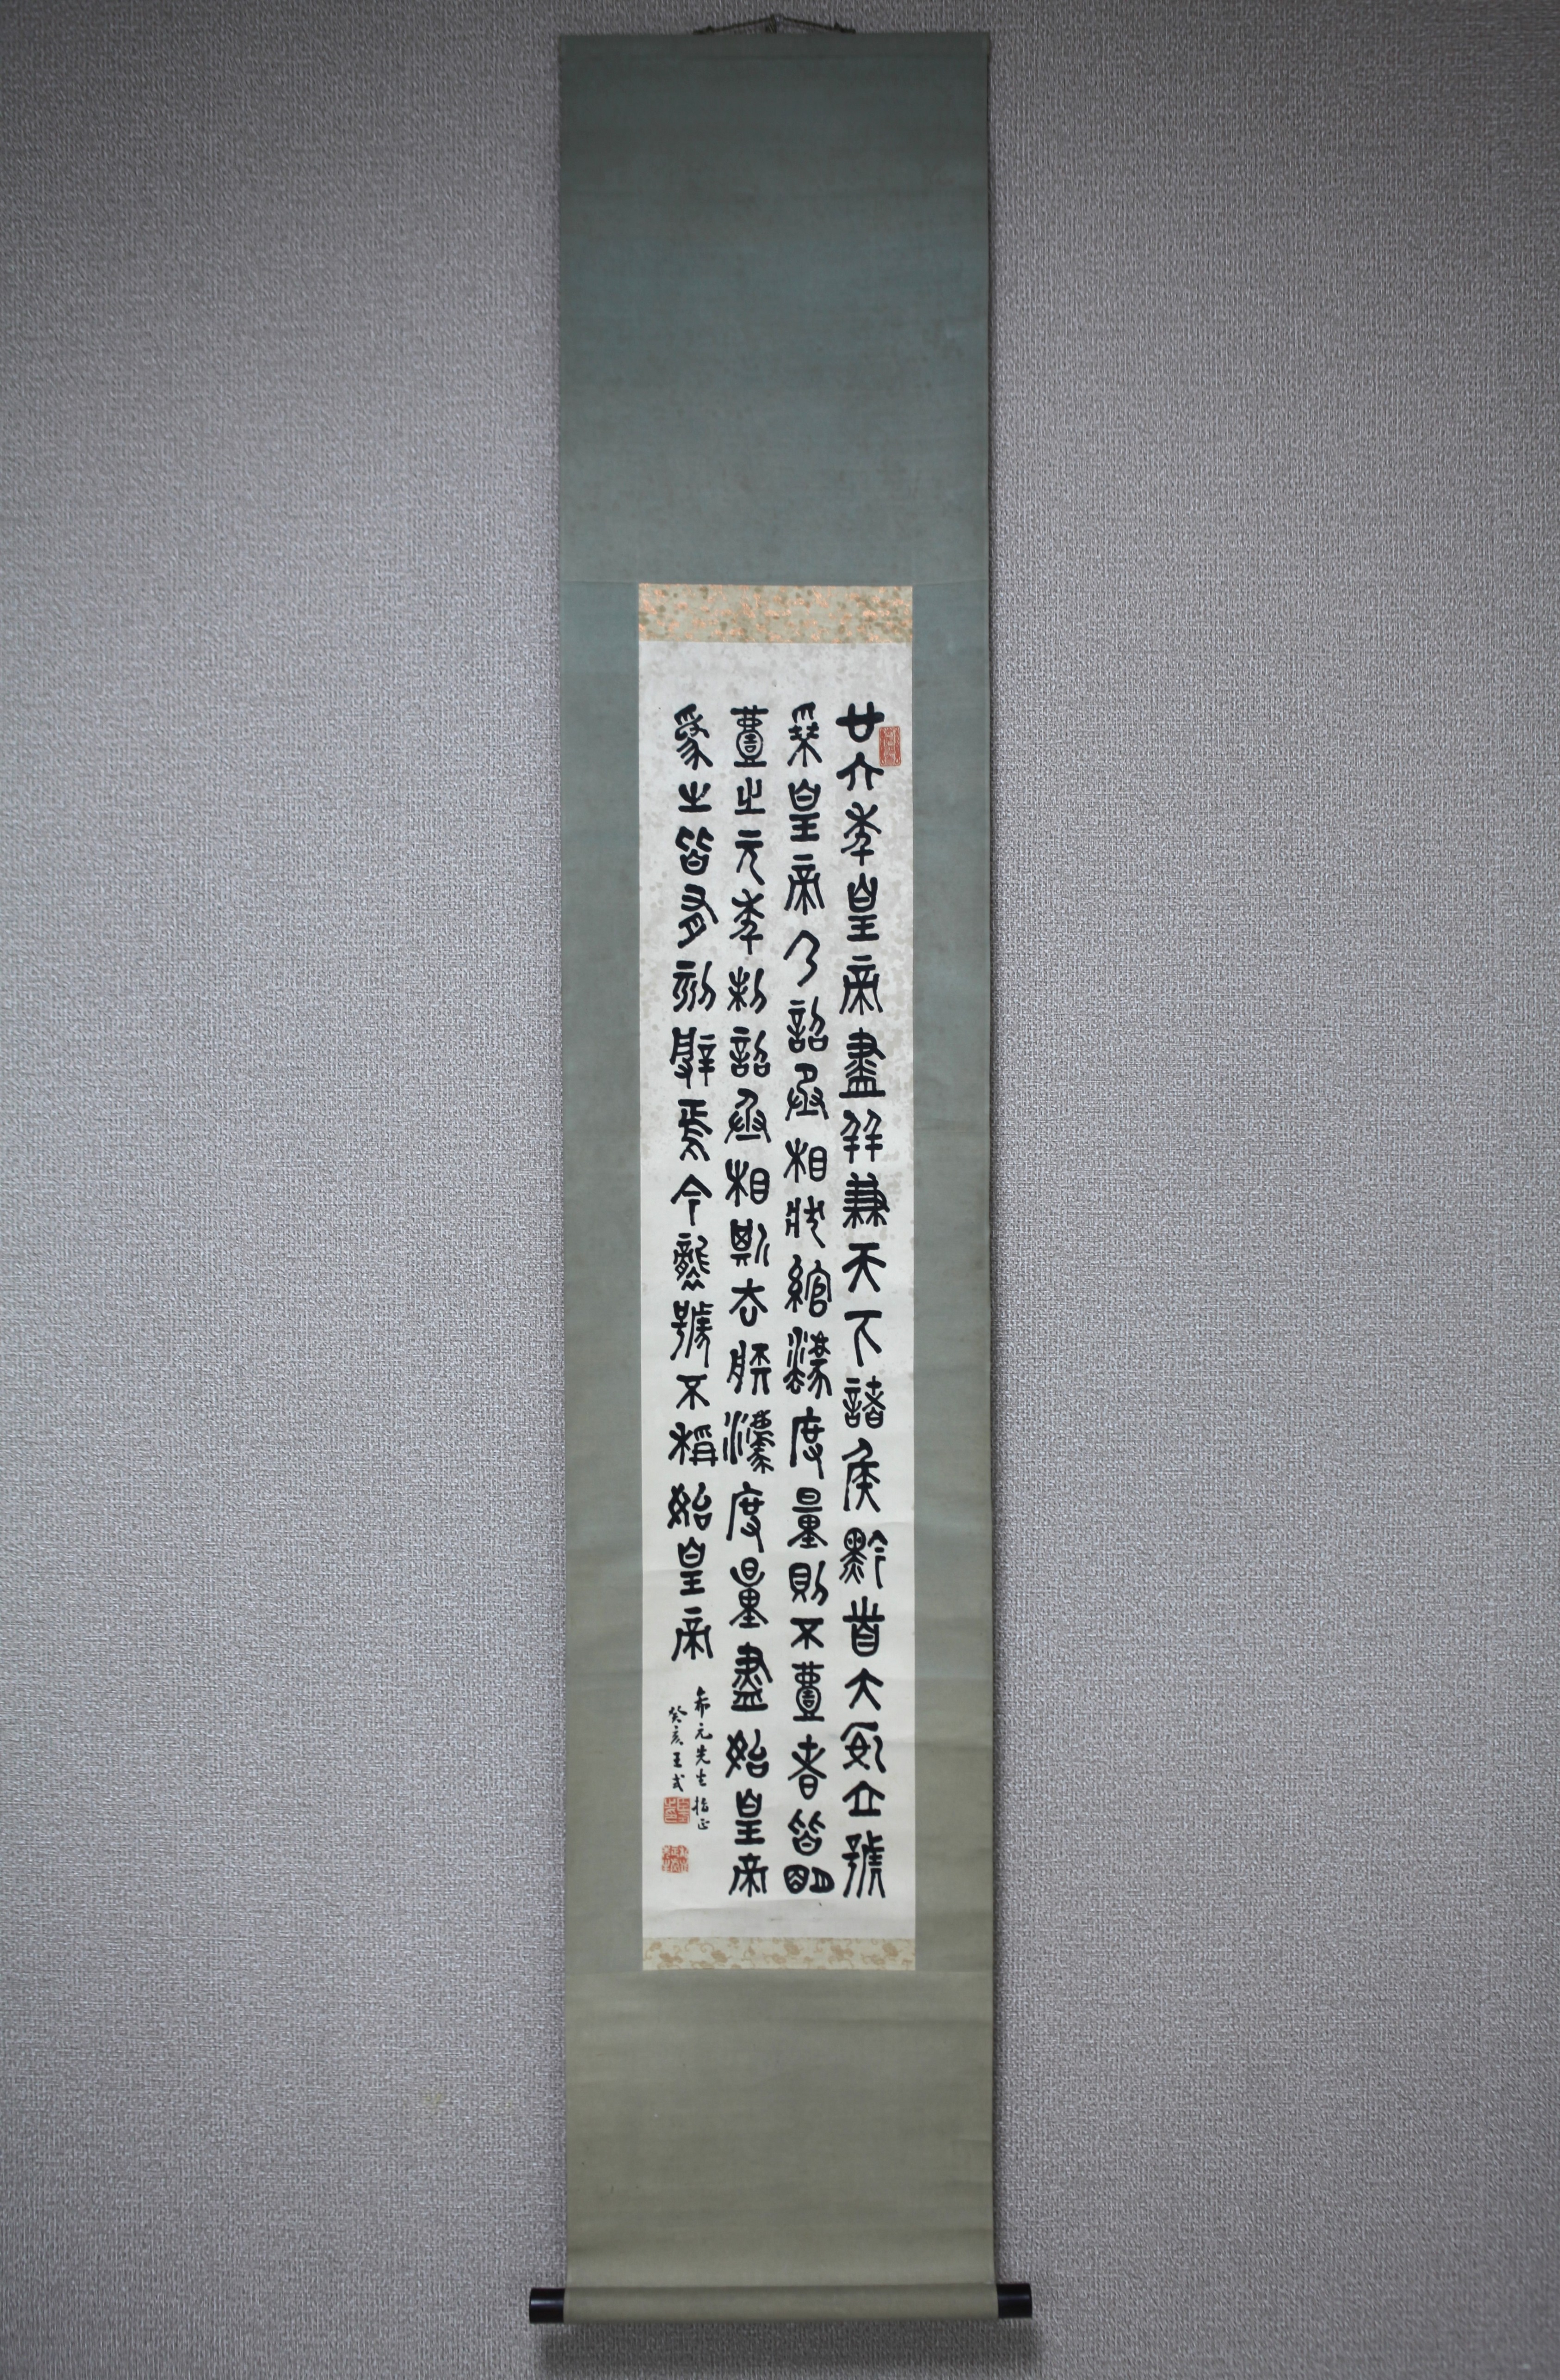 廿六年皇帝盡并兼天下諸侯黔首大安立號
爲皇帝乃詔丞相狀綰灋度量則不壹者皆明
壹之元年制詔丞相斯去疾灋度量盡始皇帝
爲之皆有刻辭焉今襲號不稱始皇帝
希元先生指正
癸亥王式